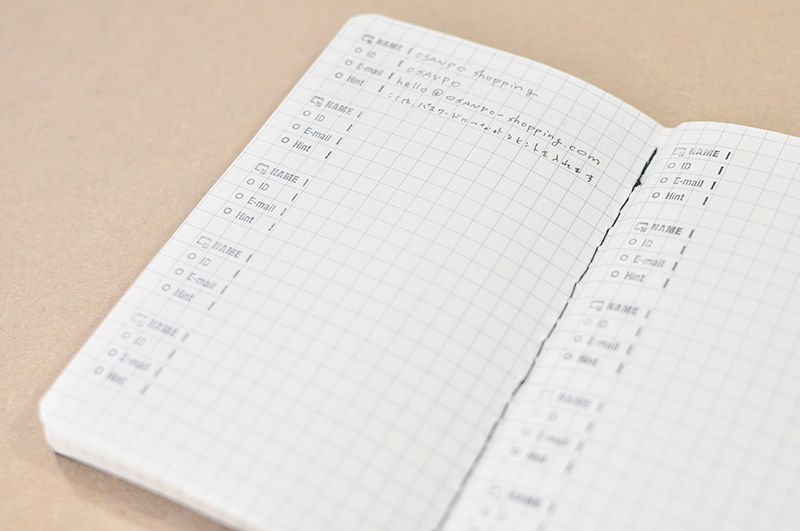 NAME | OSANPO shopping
ID | OSANPO
E-mail | hello@osanpo-shopping.com
Hint | ここに パスワードにつながるヒントを入れます
NAME |
ID |
E-mail |
Hint |
NAME |
ID |
E-mail |
Hint |
NAME |
ID |
E-mail |
Hint |
NAME |
ID |
E-mail |
Hint |
NAME |
ID |
E-mail |
Hint |
NAME |
ID |
E-mail |
Hint |
NAME |
ID |
E-mail |
Hint |
NAME |
ID |
E-mail |
Hint |
NAME |